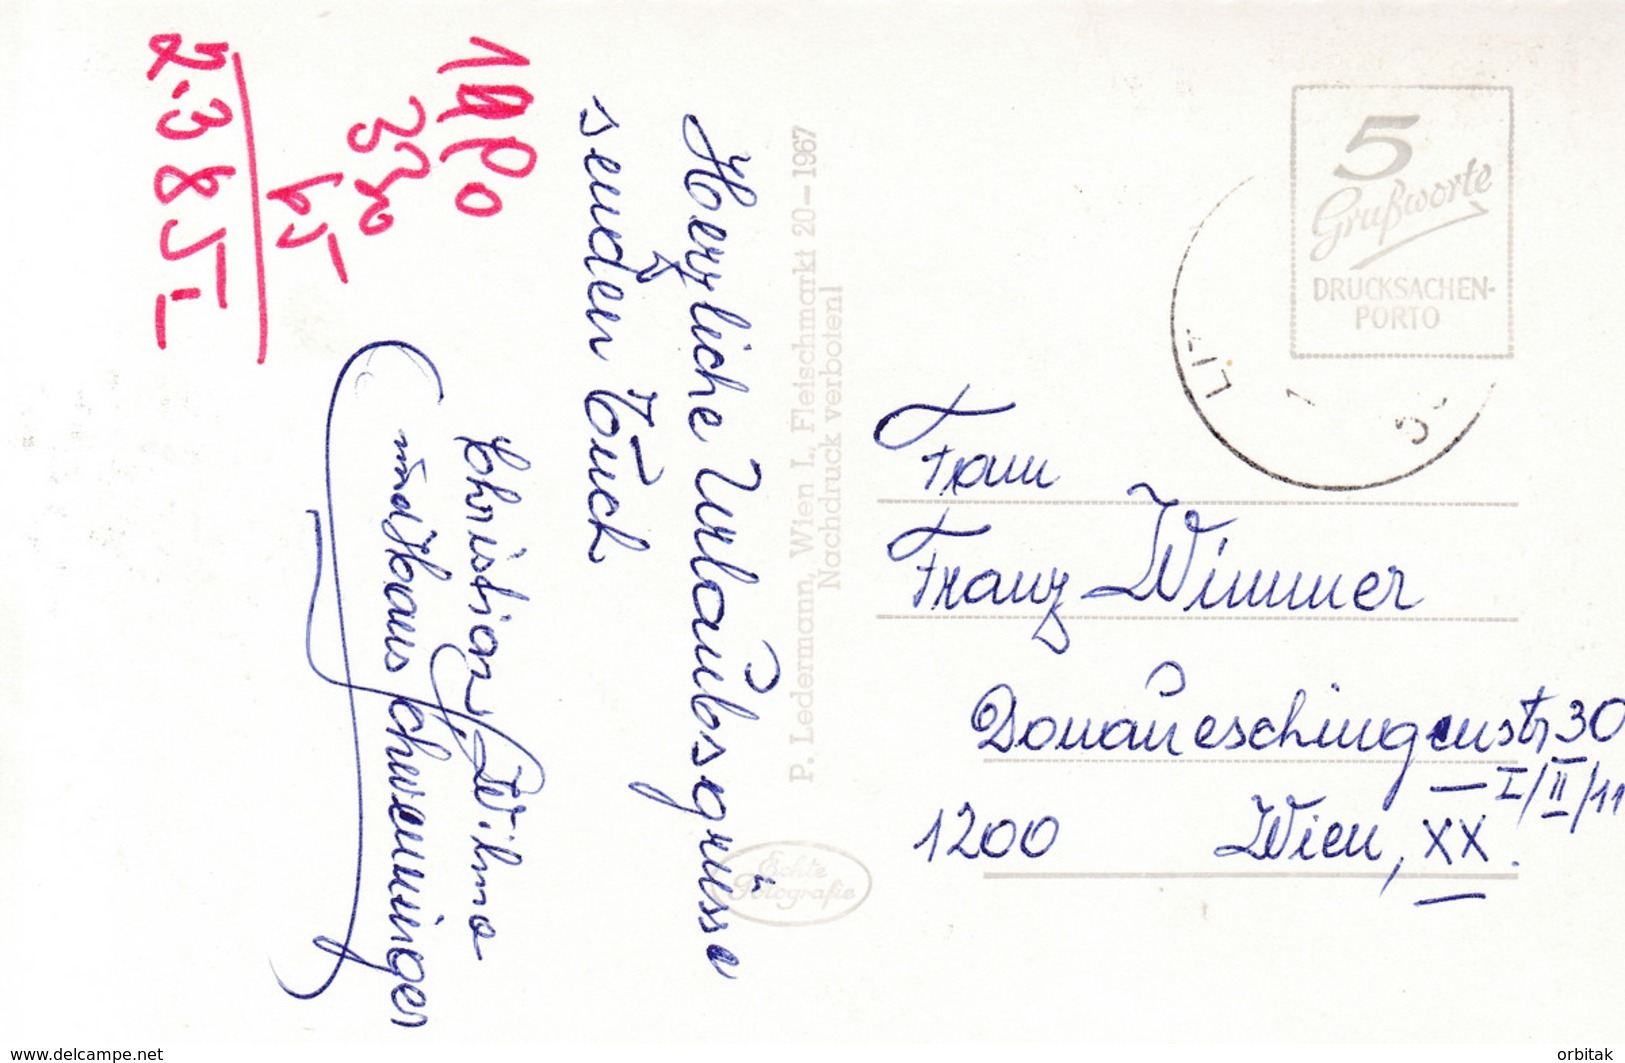 Herzliche Urlaubsgrüsse
senden Euch
Christian, Wilma
und Hans Schwenninger
P. Ledermann, Wien I., Fleischmarkt 20–1967
Nachdruck verboten!
Echte
Fotografie
5
Grußworte
DRUCKSACHEN-
PORTO
Fam
Franz Wimmer
Donaueschingenstr 30
— I/II/11
1200 Wien, XX.
www.delcampe.net
orbitak